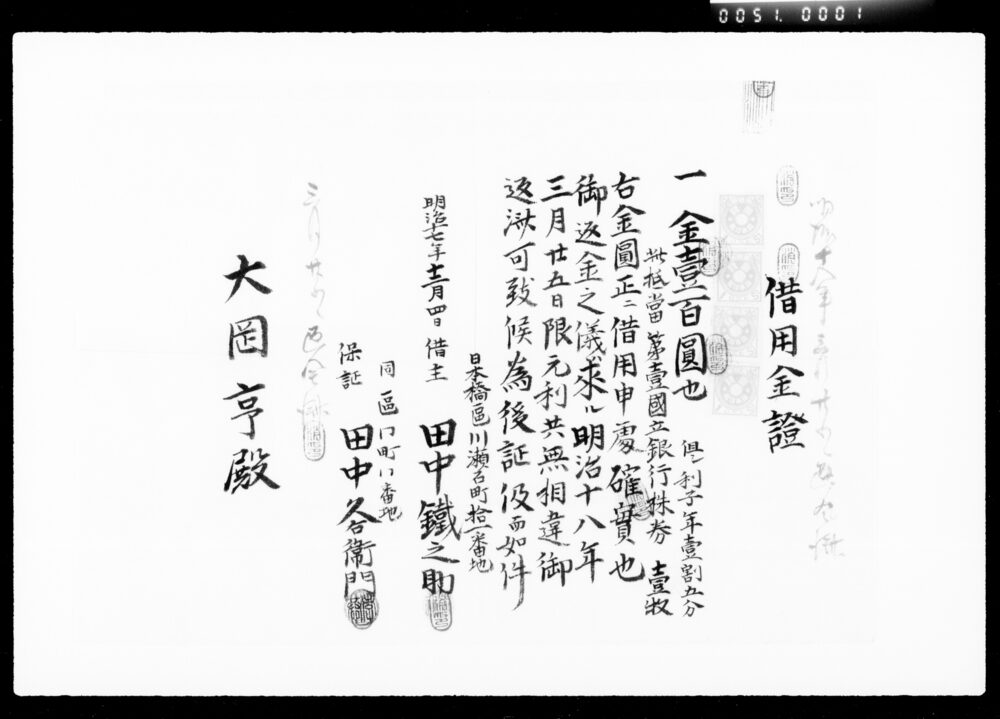 0051. 0001
借用金證
一金壹百圓也
但シ利子年壹割五分
此抵當第壹國立銀行株券 壹枚
右金圓正ニ借用申處確實也
御返金之儀ハ来ル明治十八年
三月廿五日限元利共無相違御
返済可致候為後証仍而如件
日本橋區川瀬石町拾一番地
明治十七年十二月四日 借主 田中鐵之助
同區同町同番地
保証 田中久右衛門
三月廿五日返金
大岡亨殿